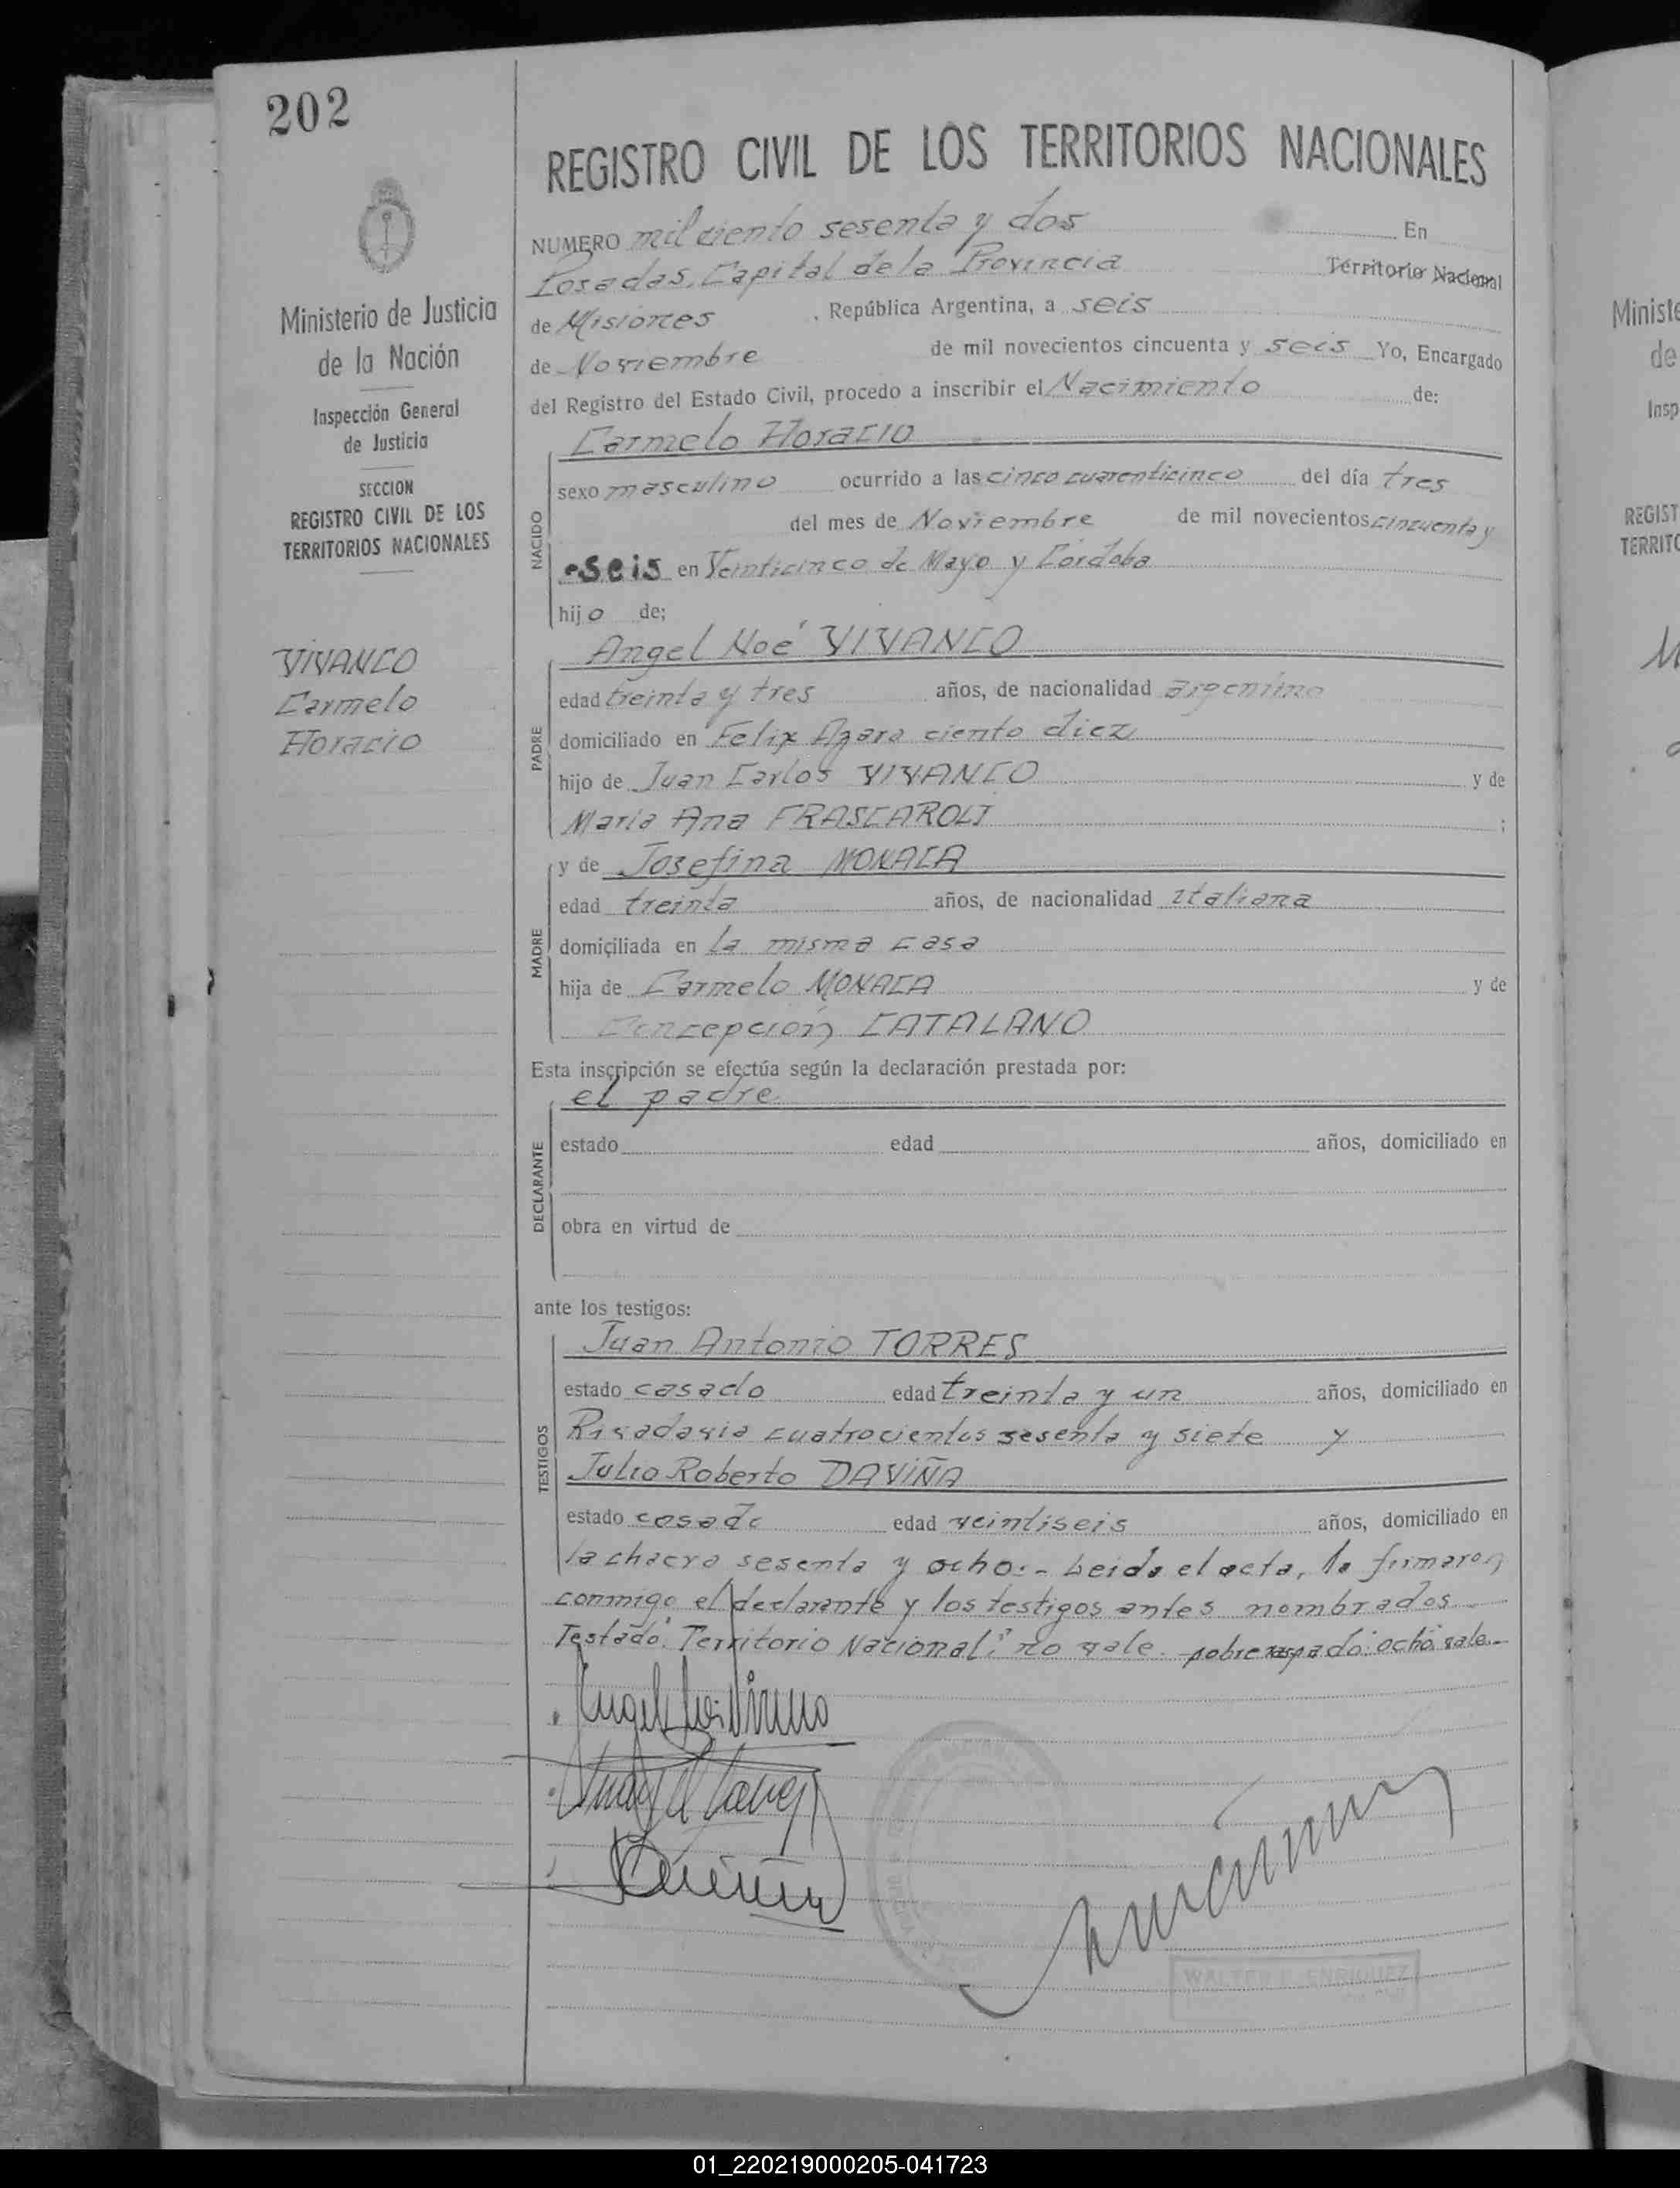 202
REGISTRO CIVIL DE LOS TERRITORIOS NACIONALES
NUMERO mil ciento sesenta y dos En
Posadas, Capital de la Provincia Territorio Nacional
de Misiones, República Argentina, a seis
de Noviembre de mil novecientos cincuenta y seis Yo, Encargado
del Registro del Estado Civil, procedo a inscribir el Nacimiento de:
Ministerio de Justicia
de la Nación
Inspección General
de Justicia
SECCION
REGISTRO CIVIL DE LOS
TERRITORIOS NACIONALES
VIVANCO
Carmelo
Horacio
NACIDO
Carmelo Horacio
sexo masculino ocurrido a las cinco cuarenticinco del día tres
del mes de Noviembre de mil novecientos cincuenta y
seis en Veinticinco de Mayo y Córdoba
hijo de;
PADRE
Angel Noé VIVANCO
edad treinta y tres años, de nacionalidad argentino
domiciliado en Felix Azara ciento diez
hijo de Juan Carlos VIVANCO y de
Maria Ana FRASCAROLI ;
MADRE
y de Josefina MONACA
edad treinta años, de nacionalidad italiana
domiciliada en la misma casa
hija de Carmelo MONACA y de
Concepción CATALANO
Esta inscripción se efectúa según la declaración prestada por:
DECLARANTE
el padre
estado edad años, domiciliado en
obra en virtud de
ante los testigos:
TESTIGOS
Juan Antonio TORRES
estado casado edad treinta y un años, domiciliado en
Rivadavia cuatrocientos sesenta y siete y
Julio Roberto DAVIÑA
estado casado edad veintiseis años, domiciliado en
la chacra sesenta y ocho.- Leida el acta, la firmaron
conmigo el declarante y los testigos antes nombrados.-
Testado: "Territorio Nacional": no vale. sobreraspado: ocho: vale.-
Angel Noé Vivanco
WALTER ENRIQUEZ
Ministe
de
Insp
REGIST
TERRITO
01_220219000205-041723